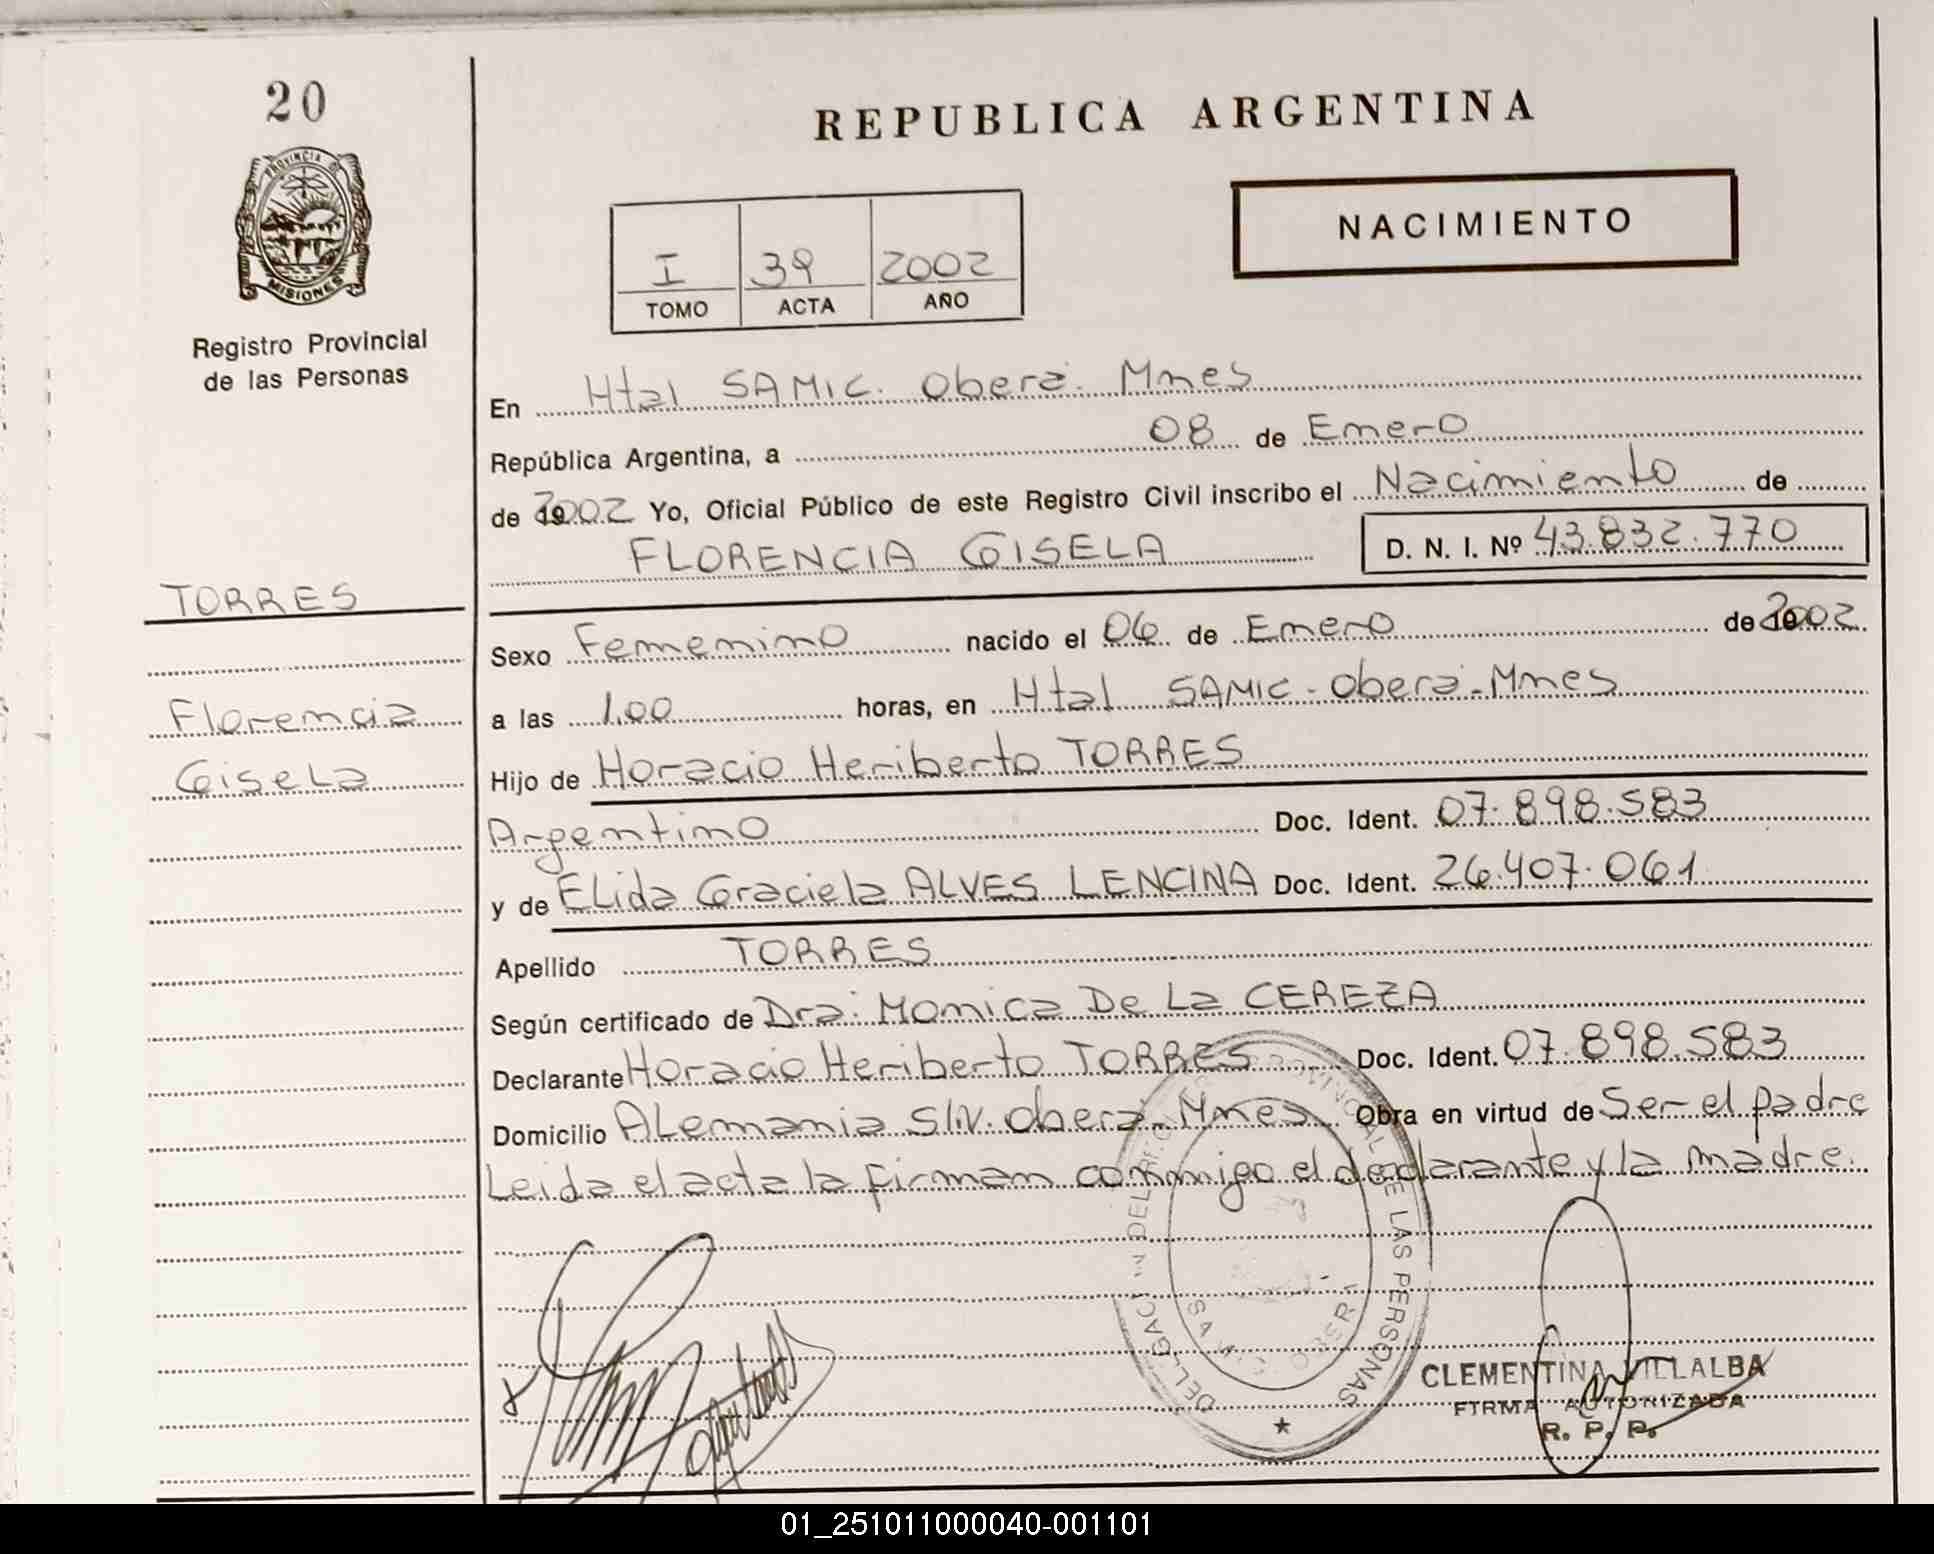 20
PROVINCIA DE
MISIONES
Registro Provincial
de las Personas
TORRES
Florencia
Gisela
REPUBLICA ARGENTINA
NACIMIENTO
I 39 2002
TOMO ACTA AÑO
En Htal SAMIC. Oberá. Mnes
República Argentina, a 08 de Enero
de 2002 Yo, Oficial Público de este Registro Civil inscribo el Nacimiento de
FLORENCIA GISELA D. N. I. Nº 43.832.770
Sexo Femenino nacido el 06 de Enero de 2002
a las 1,00 horas, en Htal SAMIC - Oberá - Mnes
Hijo de Horacio Heriberto TORRES
Argentino Doc. Ident. 07.898.583
y de Elida Graciela ALVES LENCINA Doc. Ident. 26.407.061
Apellido TORRES
Según certificado de Dra: Monica De La CEREZA
Declarante Horacio Heriberto TORRES Doc. Ident. 07.898.583
Domicilio Alemania S/N. Oberá. Mnes Obra en virtud de Ser el padre
Leida el acta la firman conmigo el declarante y la madre.
PROVINCIAL DE LAS PERSONAS
SAMIC OBERA
CLEMENTINA VILLALBA
FIRMA AUTORIZADA
R. P. P.
01_251011000040-001101